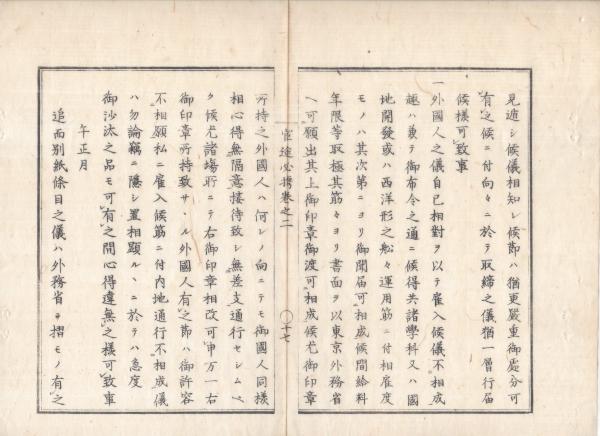 見遁シ候儀相知レ候節ハ猶更嚴重御處分可
有之候ニ付向々ニ於テ取締之儀猶一層行届
候様可致事
一外國人之儀自己相對ヲ以テ雇入候儀不相成
趣ハ兼テ御布令之通ニ候得共諸學科又ハ國
地開發或ハ西洋形之舩々運用筋ニ付相雇度
モノハ其次第ニヨリ御聞届可相成候間給料
年限等取極其筋々ヨリ書面ヲ以東京外務省
ヘ可願出其上御印章御渡可相成候尤御印章
官途必携卷之二
〇十七
所持之外國人ハ何レノ向ニテモ御國人同様
相心得無隔意接待致シ無差支通行セシムヘ
ク候尤諸場所ニテ右御印章相改可申万一右
御印章所持致サヽル外國人有之節ハ御許容
不相願私ニ雇入候筋ニ付内地通行不相成儀
ハ勿論竊ニ隱シ置相顕ルヽニ於テハ急度
御沙汰之品モ可有之間心得違無之様可致事
午正月
追而別紙條目之儀ハ外務省ヨ摺モノ有之